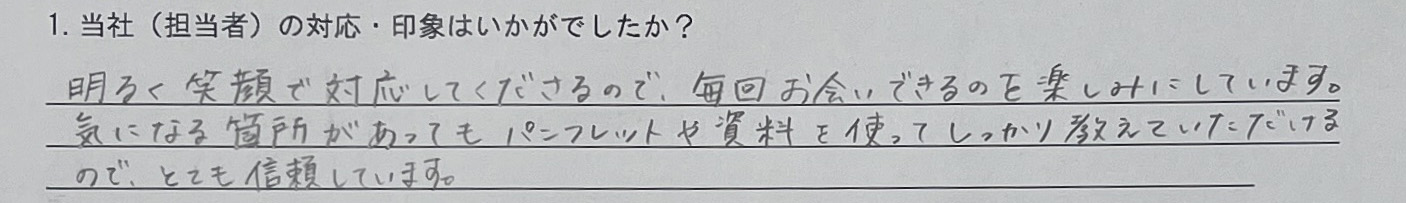 1. 当社（担当者）の対応・印象はいかがでしたか？
明るく笑顔で対応してくださるので、毎回お会いできるのを楽しみにしています。
気になる箇所があってもパンフレットや資料を使ってしっかり教えていただける
ので、とても信頼しています。